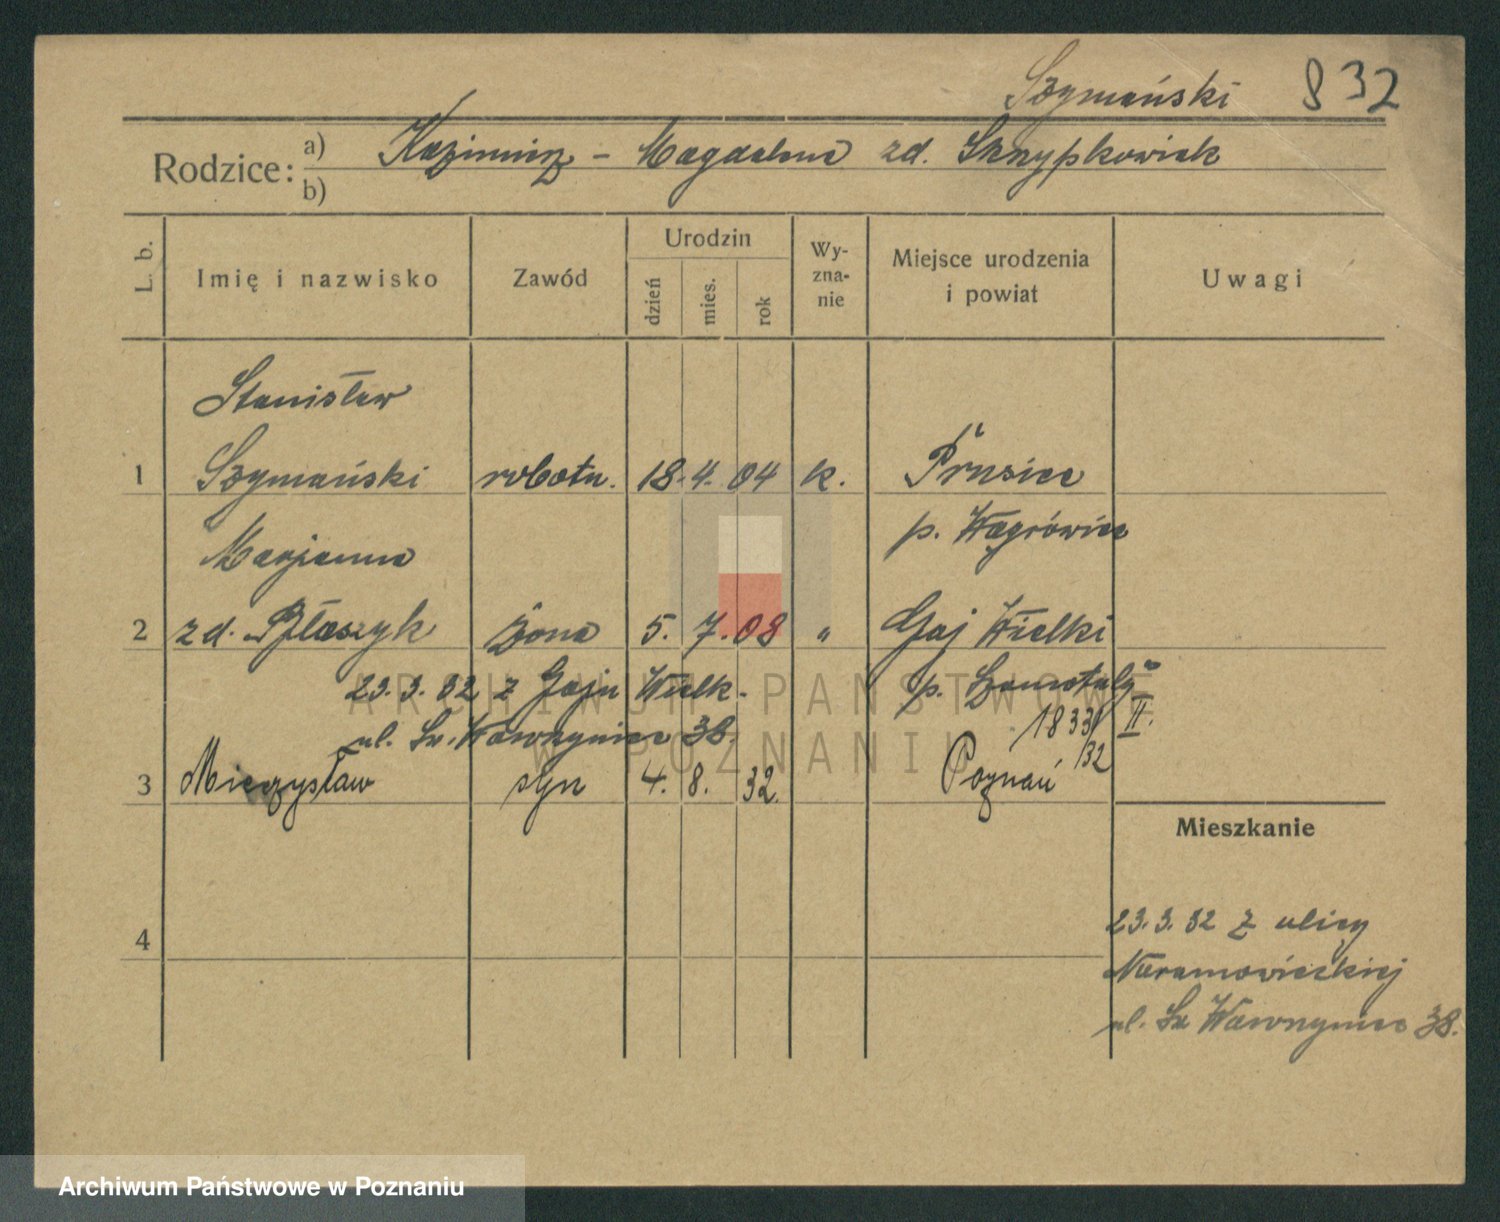 Szymański 832
Rodzice: a) Kazimierz - Magdalena zd. Skrzypkowiak
b)
L. b. Imię i nazwisko Zawód Urodzin dzień mies. rok Wy-zna-nie Miejsce urodzenia i powiat Uwagi
Stanisław
1 Szymański robotn. 18. 4. 04 k. Prusiec
p. Wągrówiec
Marjanna
2 zd. Błaszyk żona 5. 7. 08 " Gaj Wielki
23.3.32 z Gaju Wielk. p. Szamotuły
ul. Św. Wawrzyńca 38. 1833/32 II.
3 Mieczysław syn 4. 8. 32. Poznań
Mieszkanie
4
23.3.32 z ulicy
Naramowickiej
ul. Św Wawrzyńca 38.
ARCHIWUM PAŃSTWOWE
W POZNANIU
Archiwum Państwowe w Poznaniu